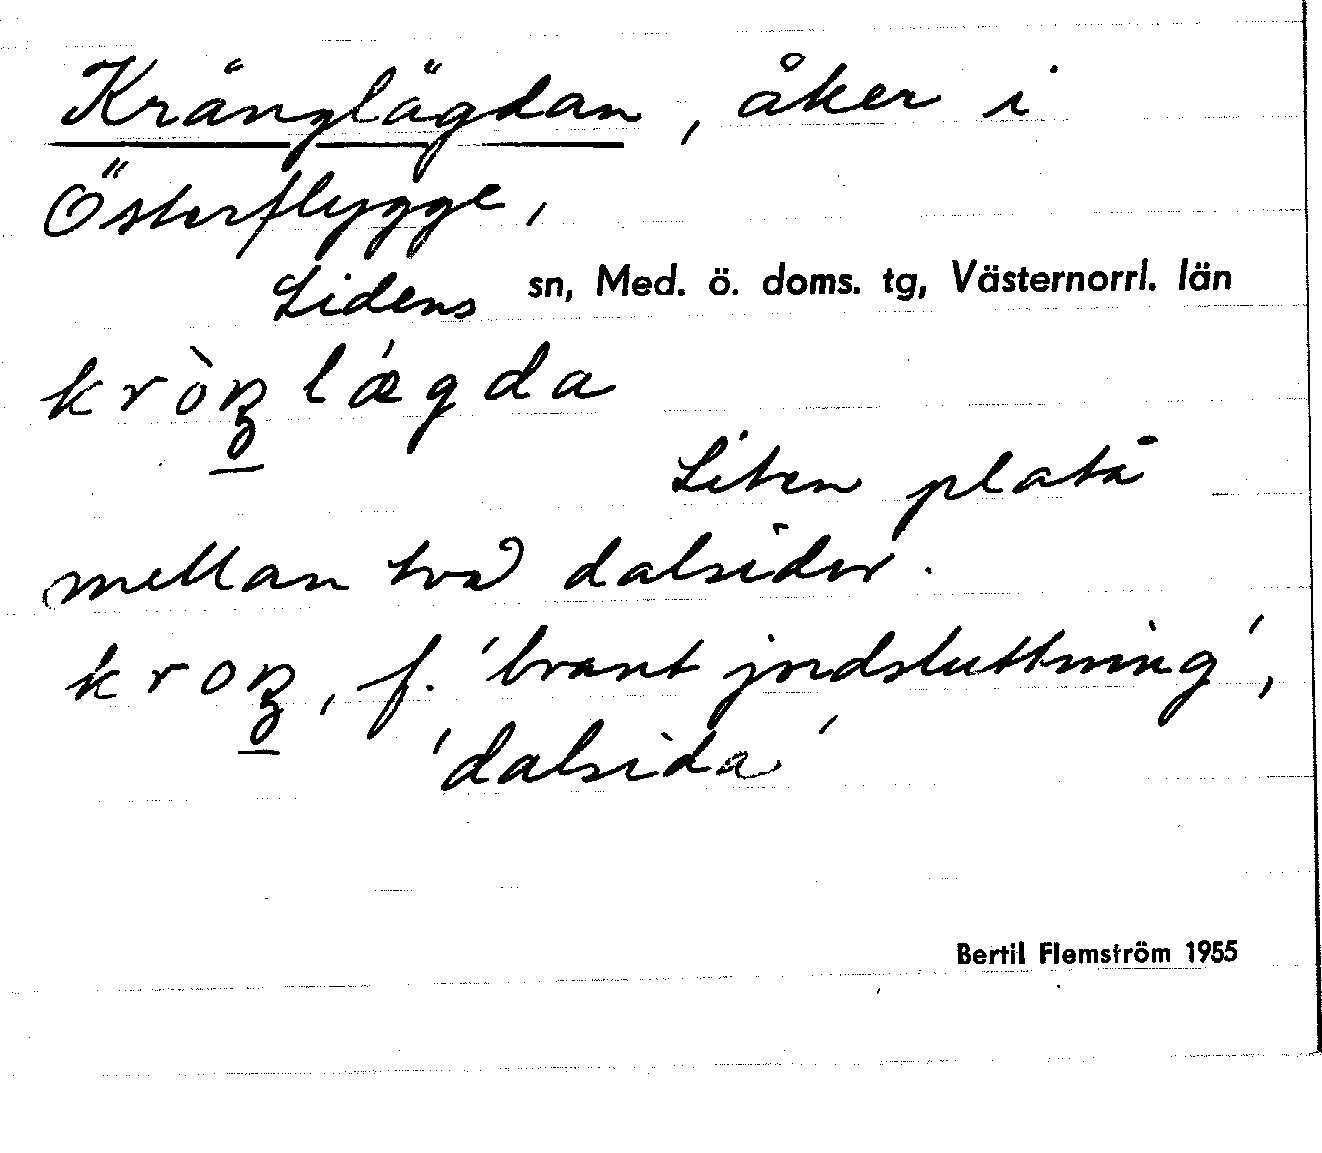 Kränglägdan, åker i
Österflygge,
Lidens sn, Med. ö. doms. tg, Västernorrl. län
kròŋlǽgda
Liten platå
mellan två dalsidor.
kroŋ, f. 'brant jordsluttning',
'dalsida'
Bertil Flemström 1955